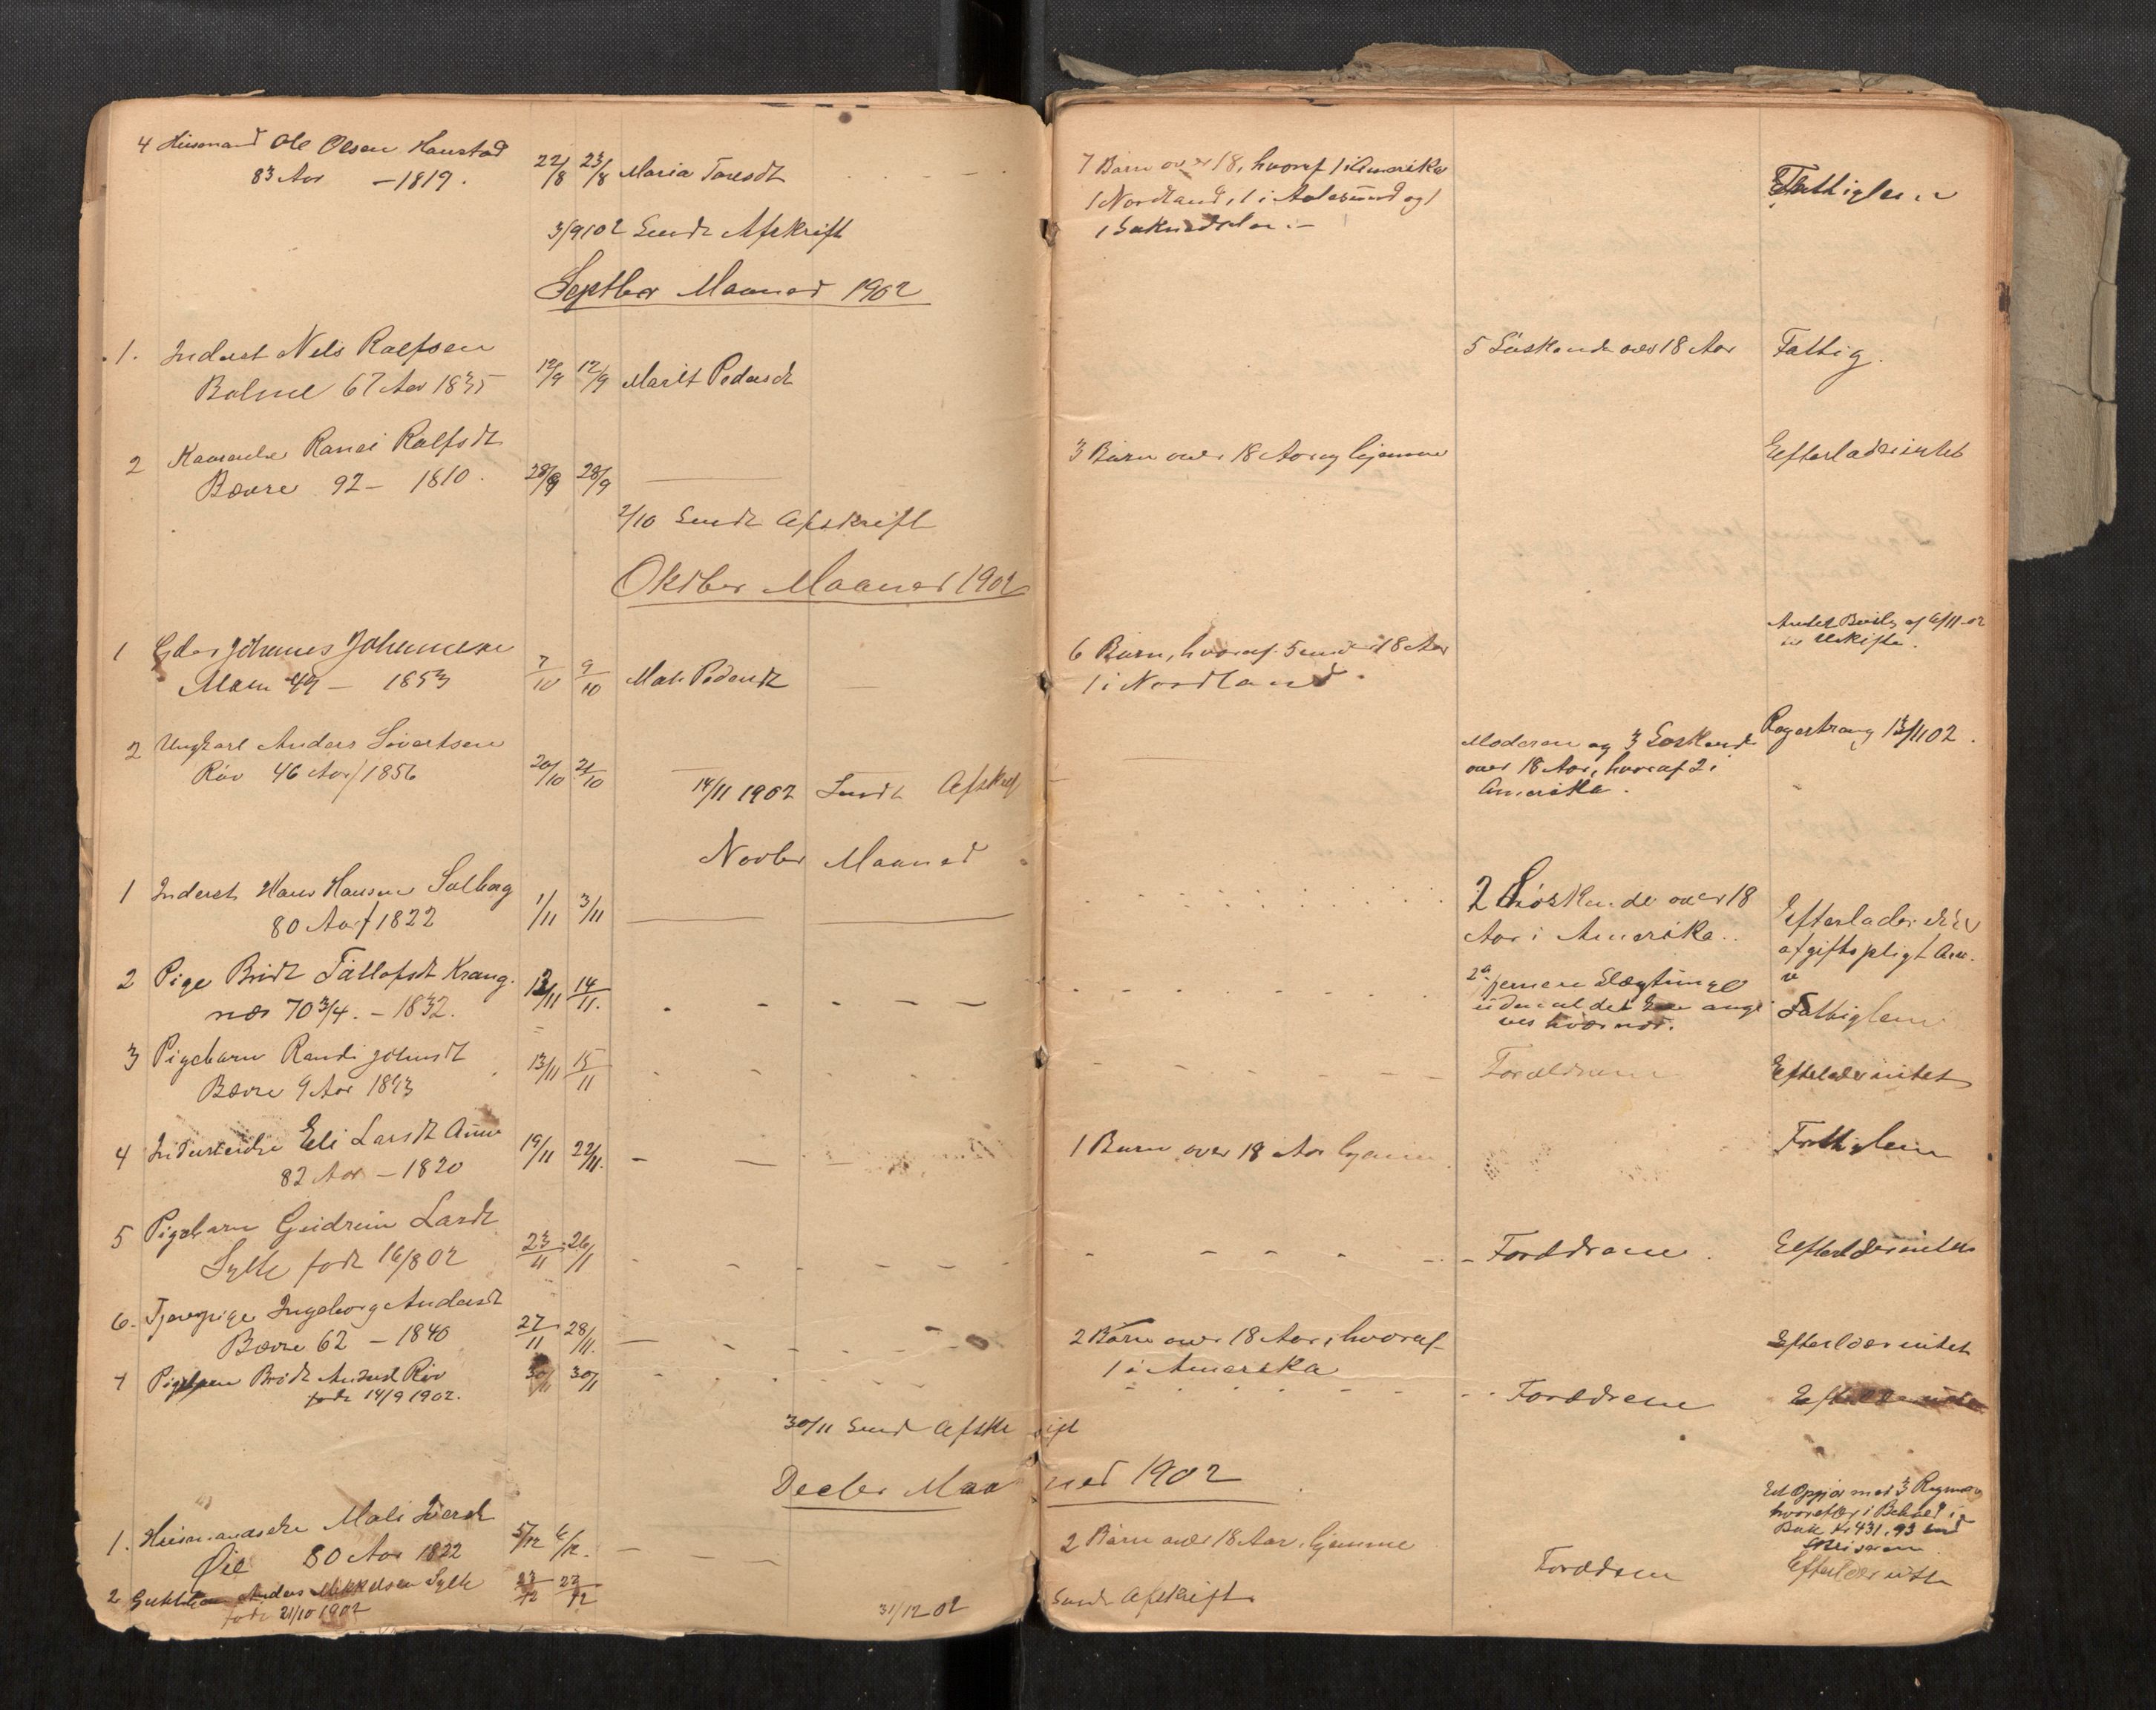 4 Husmand Ole Olsen Hanstad
83 Aar – 1819.
22/8 23/8 Maria Toresdt
7 Børn over 18, hvoraf 1 i Amerika
1 Nordland, 1 i Aalesund og
Fattiglem
3/9 102 Sendt Afskrift
Septber Maaned 1902
1. Inderst Nils Rolfsen
Bolme 67 Aar 1835
12/9 12/9 Marit Pedersdt
5 Søskende over 18 Aar
Fattig.
2 Ranei Rolfsdt
Bævre 92 – 1810.
28/9 28/9
3 Børn over 18 Aar og hjemme
Efterlader intet
2/10 Sendt Afskrift
Oktber Maaned 1902
1 Gdbr Johannes Johannesen
Moen 49 – 1853
7/10 9/10 Mali Pedersdt
6 Børn, hvoraf 5 under 18 Aar
1 i Nordland.
Anmeldt Bevilg af 6/11-02
2 Ungkarl Anders Sivertsen
Røv 46 Aar / 1856
20/10 21/10
Moderen og 3 Søskende
over 18 Aar, hvoraf 2 i
Amerika.
13/11 02.
14/11 1902 Sendt Afskrift
Novber Maaned
1 Inderst Hans Hansen Solberg
80 Aar / 1822
1/11 3/11
2 Søskende over 18
Aar i Amerika.
Efterlader ikke
afgiftspligt
2 Pige Brit Tøllefsdt Krang-
næs 70 3/4. – 1832.
12/11 14/11.
fjernere Slægtninge
uden at det kan angi
ves hvor nær.
Fattiglem
3 Pigebarn Randi Johnsdt
Bævre 9 Aar 1893
13/11 15/11
Forældrene
Efterlader intet
4 Inderstenke Eli Larsdt
82 Aar – 1820
19/11 22/11.
1 Barn over 18 Aar hjemme
Fattiglem
5 Pigebarn Gudrun Larsdt
Sylte født 16/8 02
23/11 26/11
Forældrene.
Efterlader intet
6. Tjenepige Ingeborg Andersdt
Bævre 62 – 1840
27/11 28/11.
2 Børn over 18 Aar, hvoraf
1 i Amerika
Efterlader intet
7 Pigebarn Brit Andersdt Røv
født 14/9 1902.
30/11 30/11
Forældrene
Efterlader intet
30/11 Sendt Afskrift
Decber Maaned 1902
1. Husmandsenke Mali Siversdt
Øie 80 Aar 1822
5/12 6/12.
2 Børn over 18 Aar, hjemme
Bok Kr 431,93
2 Guttebarn Anders Mikkelsen Sylte
født 21/10 1902
23/12 23/12
Forældrene
Efterlader intet
31/12 02 Sendt Afskrift.